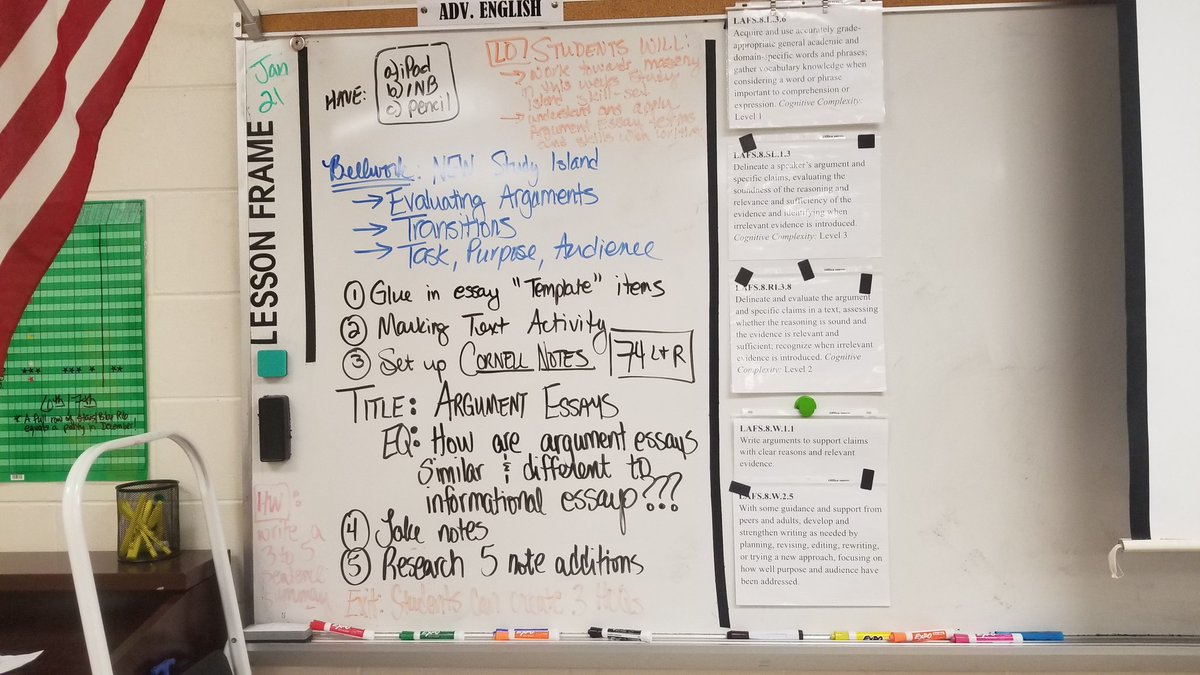 ADV. ENGLISH
Jan
21
LESSON FRAME
HAVE:
a) iPad
b) INB
c) pencil
LO STUDENTS WILL:
→ work towards mastery
in this weeks Study
Island skill-set
→ understand and apply
Argument essay terms
and skills when writing
Bellwork: NEW Study Island
→ Evaluating Arguments
→ Transitions
→ Task, Purpose, Audience
① Glue in essay "Template" items
② Marking Text Activity
③ Set up CORNELL NOTES
74 L+R
TITLE: ARGUMENT ESSAYS
EQ: How are argument essays
similar & different to
informational essays???
④ Take notes
⑤ Research 5 note additions
Exit: Students can create 3 HCQs
HW:
write a
3 to 5
sentence
summary
LAFS.8.L.3.6
Acquire and use accurately grade-
appropriate general academic and
domain-specific words and phrases;
gather vocabulary knowledge when
considering a word or phrase
important to comprehension or
expression. Cognitive Complexity:
Level 1
LAFS.8.SL.1.3
Delineate a speaker's argument and
specific claims, evaluating the
soundness of the reasoning and
relevance and sufficiency of the
evidence and identifying when
irrelevant evidence is introduced.
Cognitive Complexity: Level 3
LAFS.8.RI.3.8
Delineate and evaluate the argument
and specific claims in a text, assessing
whether the reasoning is sound and
the evidence is relevant and
sufficient; recognize when irrelevant
evidence is introduced. Cognitive
Complexity: Level 2
LAFS.8.W.1.1
Write arguments to support claims
with clear reasons and relevant
evidence.
LAFS.8.W.2.5
With some guidance and support from
peers and adults, develop and
strengthen writing as needed by
planning, revising, editing, rewriting,
or trying a new approach, focusing on
how well purpose and audience have
been addressed.
* A full row of
equals a party in December!
EXPO